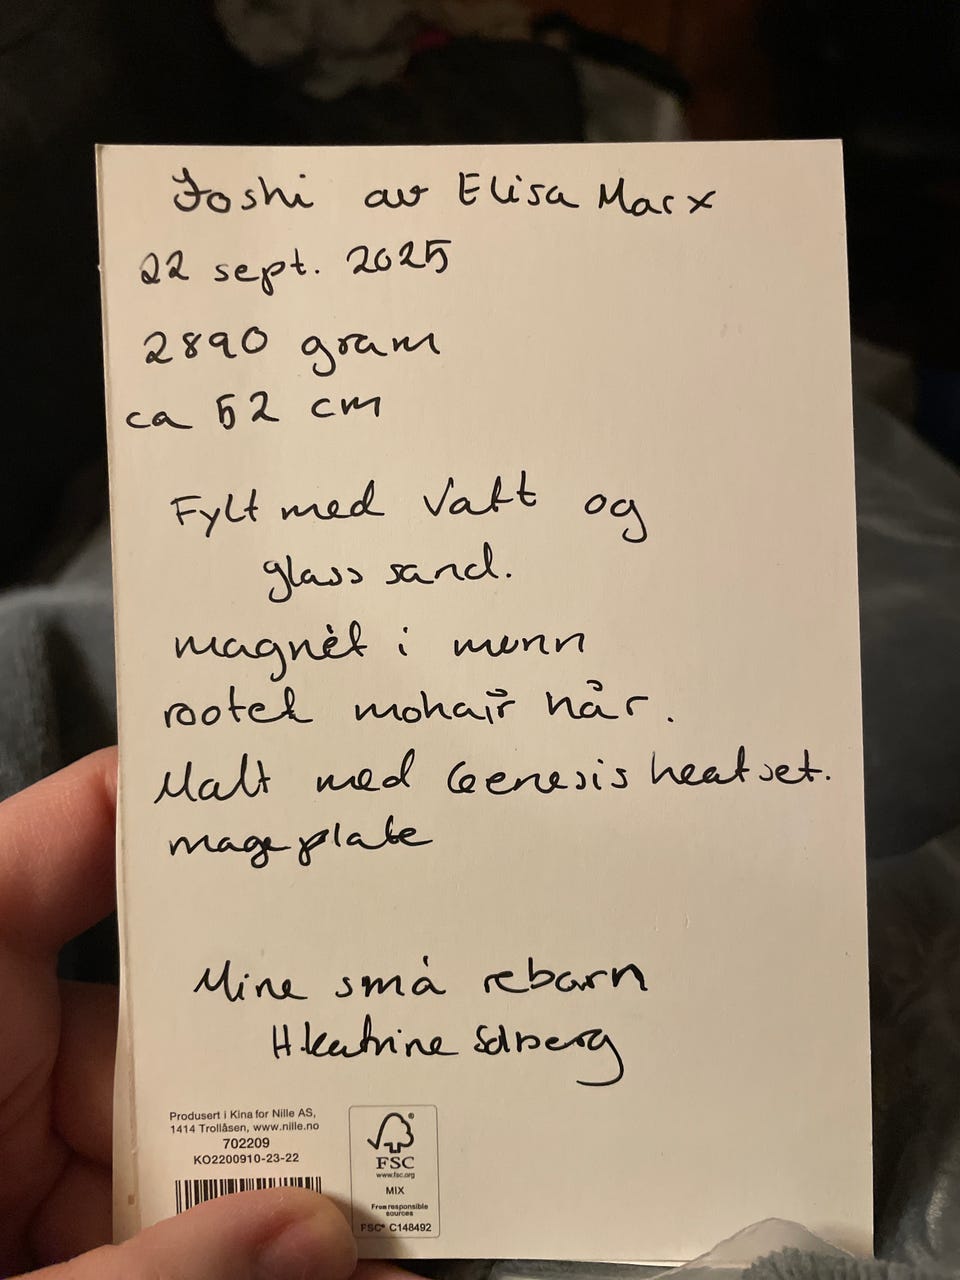 Joshi av Elisa Marx
22 sept. 2025
2890 gram
ca 52 cm
Fylt med Vatt og
glass sand.
magnèt i munn
rootet mohair hår.
Malt med Genesis heatset.
mageplate
Mine små reborn
H.katrine Solberg
Produsert i Kina for Nille AS,
1414 Trollåsen, www.nille.no
702209
KO2200910-23-22
FSC®
www.fsc.org
MIX
From responsible
sources
FSC® C148492